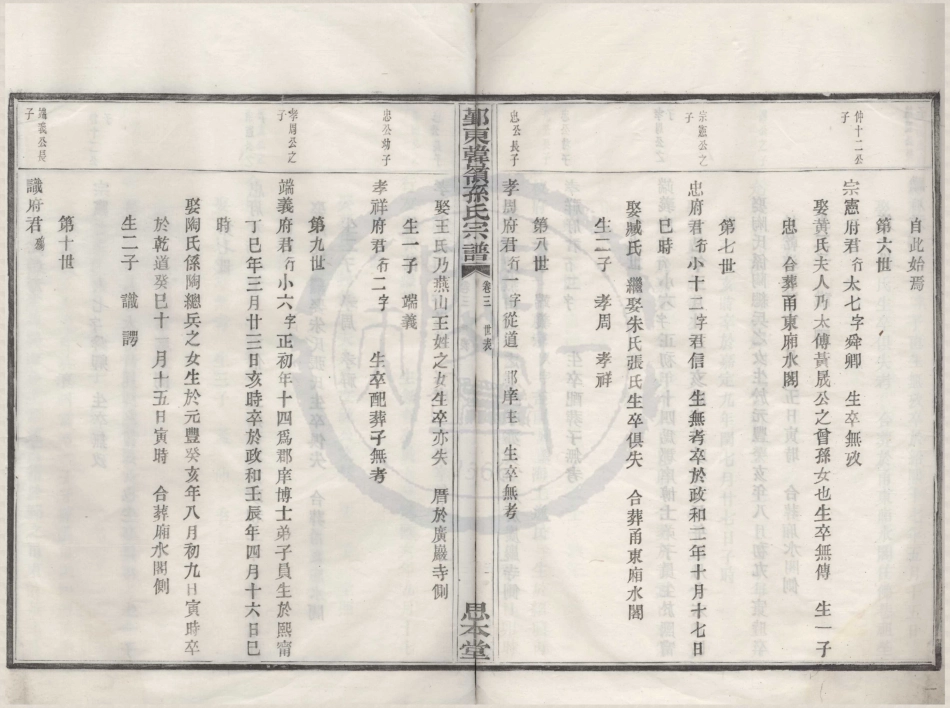 自此始焉
第六世
仲十二公子
宗憲府君 行太七字舜卿 生卒無攷
娶黄氏夫人乃太傅黃晟公之曾孫女也生卒無傳 生一子
忠 合葬甬東廂水閣
第七世
宗憲公之子
忠府君 行小十二字君信 生無考卒於政和二年十月十七日
巳時
娶臧氏 繼娶朱氏張氏生卒俱失 合葬甬東廂水閣
生二子 孝周 孝祥
第八世
忠公長子
孝周府君 行一字從道 郡庠生 生卒無考
鄞東韓嶺孫氏宗譜 卷三 世表 二 思本堂
娶王氏乃燕山王姓之女生卒亦失 厝於廣嚴寺側
生一子 端義
忠公幼子
孝祥府君 行二字 生卒配葬子無考
第九世
孝周公之子
端義府君 行小六字正初年十四爲郡庠博士弟子員生於熙甯
丁巳年三月廿三日亥時卒於政和壬辰年四月十六日巳
時
娶陶氏係陶總兵之女生於元豐癸亥年八月初九日寅時卒
於乾道癸巳十一月十五日寅時 合葬廂水閣側
生二子 識 諤
第十世
端義公長子
識府君